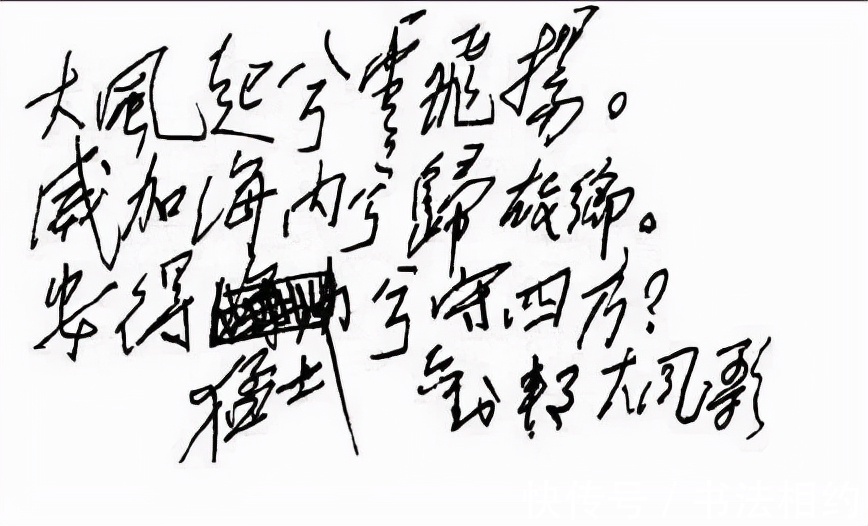 大風起兮雲飛揚。
威加海内兮歸故鄉。
安得猛士兮守四方？
劉邦大风歌
快传号/书法相约